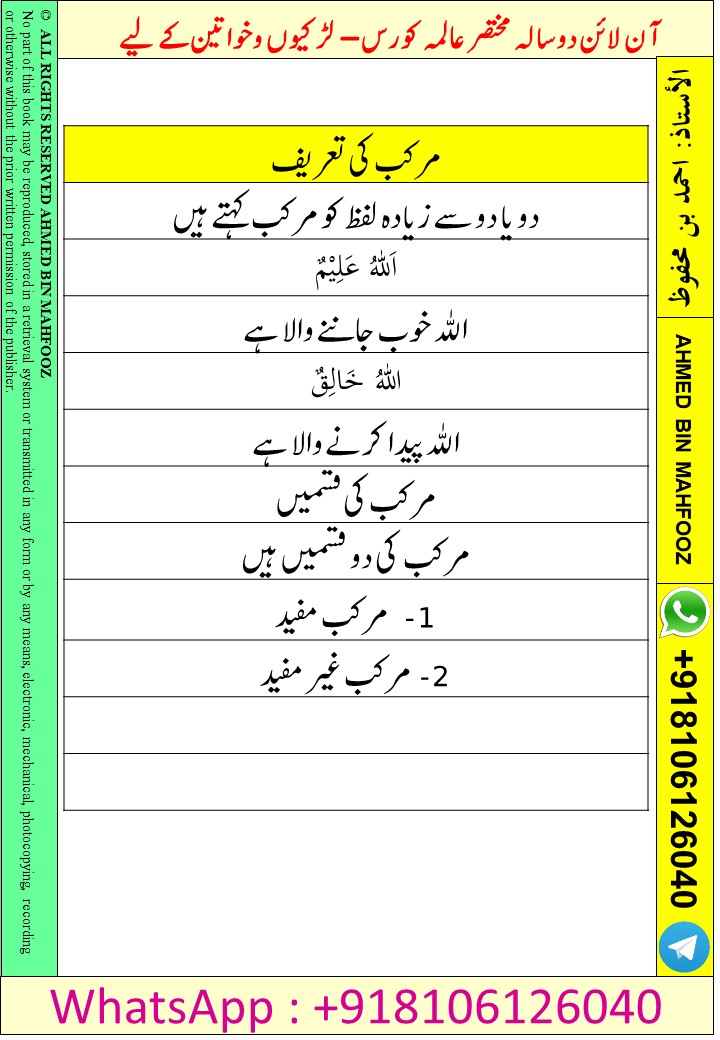 آن لائن دو سالہ مختصر عالمہ کورس – لڑکیوں و خواتین کے لیے
مرکب کی تعریف
دو یا دو سے زیادہ لفظ کو مرکب کہتے ہیں
اَللهُ عَلِيْمٌ
اللہ خوب جاننے والا ہے
اللهُ خَالِقٌ
اللہ پیدا کرنے والا ہے
مرکب کی قسمیں
مرکب کی دو قسمیں ہیں
1- مرکب مفید
2- مرکب غیر مفید
الأستاذ: احمد بن محفوظ
AHMED BIN MAHFOOZ
+918106126040
© ALL RIGHTS RESERVED AHMED BIN MAHFOOZ
No part of this book may be reproduced, stored in a retrieval system or transmitted in any form or by any means, electronic, mechanical, photocopying, recording
or otherwise without the prior written permission of the publisher.
WhatsApp : +918106126040